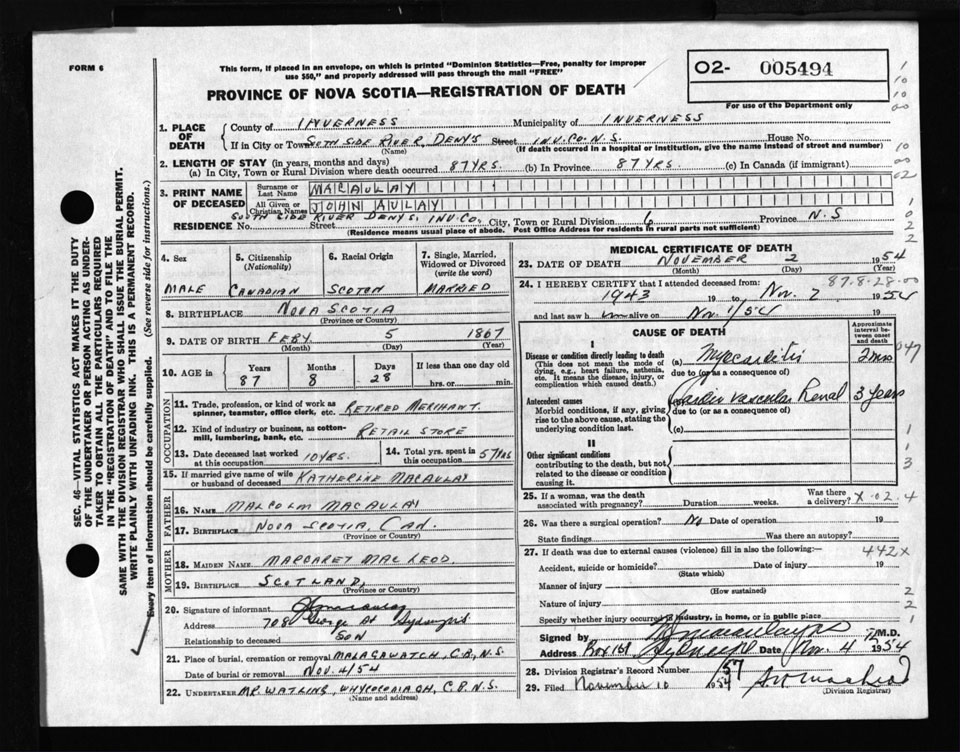 FORM 6
This form, if placed in an envelope, on which is printed "Dominion Statistics—Free, penalty for improper
use $50," and properly addressed will pass through the mail "FREE"
PROVINCE OF NOVA SCOTIA—REGISTRATION OF DEATH
O2- 005494
For use of the Department only
SEC. 46—VITAL STATISTICS ACT MAKES IT THE DUTY
OF THE UNDERTAKER OR PERSON ACTING AS UNDER-
TAKER TO OBTAIN ALL THE PARTICULARS REQUIRED
IN THE "REGISTRATION OF DEATH" AND TO FILE THE
SAME WITH THE DIVISION REGISTRAR WHO SHALL ISSUE THE BURIAL PERMIT.
WRITE PLAINLY WITH UNFADING INK. THIS IS A PERMANENT RECORD.
Every item of information should be carefully supplied. (See reverse side for instructions.)
1. PLACE OF DEATH County of INVERNESS Municipality of INVERNESS
If in City or Town SOUTH SIDE RIVER DENYS Street INV. CO. N.S. House No.
(Name) (If death occurred in a hospital or institution, give the name instead of street and number)
2. LENGTH OF STAY (in years, months and days)
(a) In City, Town or Rural Division where death occurred 87 YRS. (b) In Province 87 YRS. (c) In Canada (if immigrant)
3. PRINT NAME OF DECEASED Surname or Last Name MACAULAY
All Given or Christian Names JOHN AULAY
RESIDENCE No. SOUTH SIDE RIVER DENYS, INV. CO. Street City, Town or Rural Division 6 Province N.S
(Residence means usual place of abode. Post Office Address for residents in rural parts not sufficient)
4. Sex MALE
5. Citizenship (Nationality) CANADIAN
6. Racial Origin SCOTCH
7. Single, Married, Widowed or Divorced (write the word) MARRIED
8. BIRTHPLACE NOVA SCOTIA
(Province or Country)
9. DATE OF BIRTH FEBY. 5 1867
(Month) (Day) (Year)
10. AGE Years 87 Months 8 Days 28 If less than one day hrs. or min.
OCCUPATION
11. Trade, profession, or kind of work as spinner, teamster, office clerk, etc. RETIRED MERCHANT.
12. Kind of industry or business, as cotton-mill, lumbering, bank, etc. RETAIL STORE
13. Date deceased last worked at this occupation 10 YRS. 14. Total yrs. spent in this occupation 57 YRS
15. If married give name of wife or husband of deceased KATHERINE MACAULAY
FATHER
16. Name MALCOLM MACAULAY
17. Birthplace NOVA SCOTIA, CAN.
(Province or Country)
MOTHER
18. Maiden Name MARGARET MACLEOD.
19. Birthplace SCOTLAND,
(Province or Country)
20. Signature of informant
Address 708 George St Sydney NS
Relationship to deceased SON
21. Place of burial, cremation or removal MALAGAWATCH, C.B., N.S.
Date of burial or removal NOV. 4/54
22. UNDERTAKER MR. WATLING, WHYCOCOMAGH, C.B. N.S.
(Name and address)
MEDICAL CERTIFICATE OF DEATH
23. DATE OF DEATH NOVEMBER 2 1954
(Month) (Day) (Year)
24. I HEREBY CERTIFY that I attended deceased from: 87.8-28-00
1943 19 to Nov. 2 1954
and last saw h im alive on Nov. 1/54 19
CAUSE OF DEATH
Approximate interval between onset and death
I
Disease or condition directly leading to death (a) Myocarditis 2 mos 047
(This does not mean the mode of dying, e.g., heart failure, asthenia, etc. It means the disease, injury, or complication which caused death.)
due to (or as a consequence of)
Antecedent causes (b) Cardio vascular Renal 3 years
Morbid conditions, if any, giving rise to the above cause, stating the underlying condition last.
due to (or as a consequence of)
(c)
II
Other significant conditions
contributing to the death, but not related to the disease or condition causing it.
25. If a woman, was the death associated with pregnancy? Duration weeks. Was there a delivery? X.02.4
26. Was there a surgical operation? No Date of operation 19
State findings Was there an autopsy?
27. If death was due to external causes (violence) fill in also the following:- 442X
Accident, suicide or homicide? Date of injury 19
(State which)
Manner of injury
(How sustained)
Nature of injury
Specify whether injury occurred in industry, in home, or in public place
Signed by M.D.
Address Box 161 Date Nov. 4 1954
28. Division Registrar's Record Number 57
29. Filed November 10 1954
(Division Registrar)